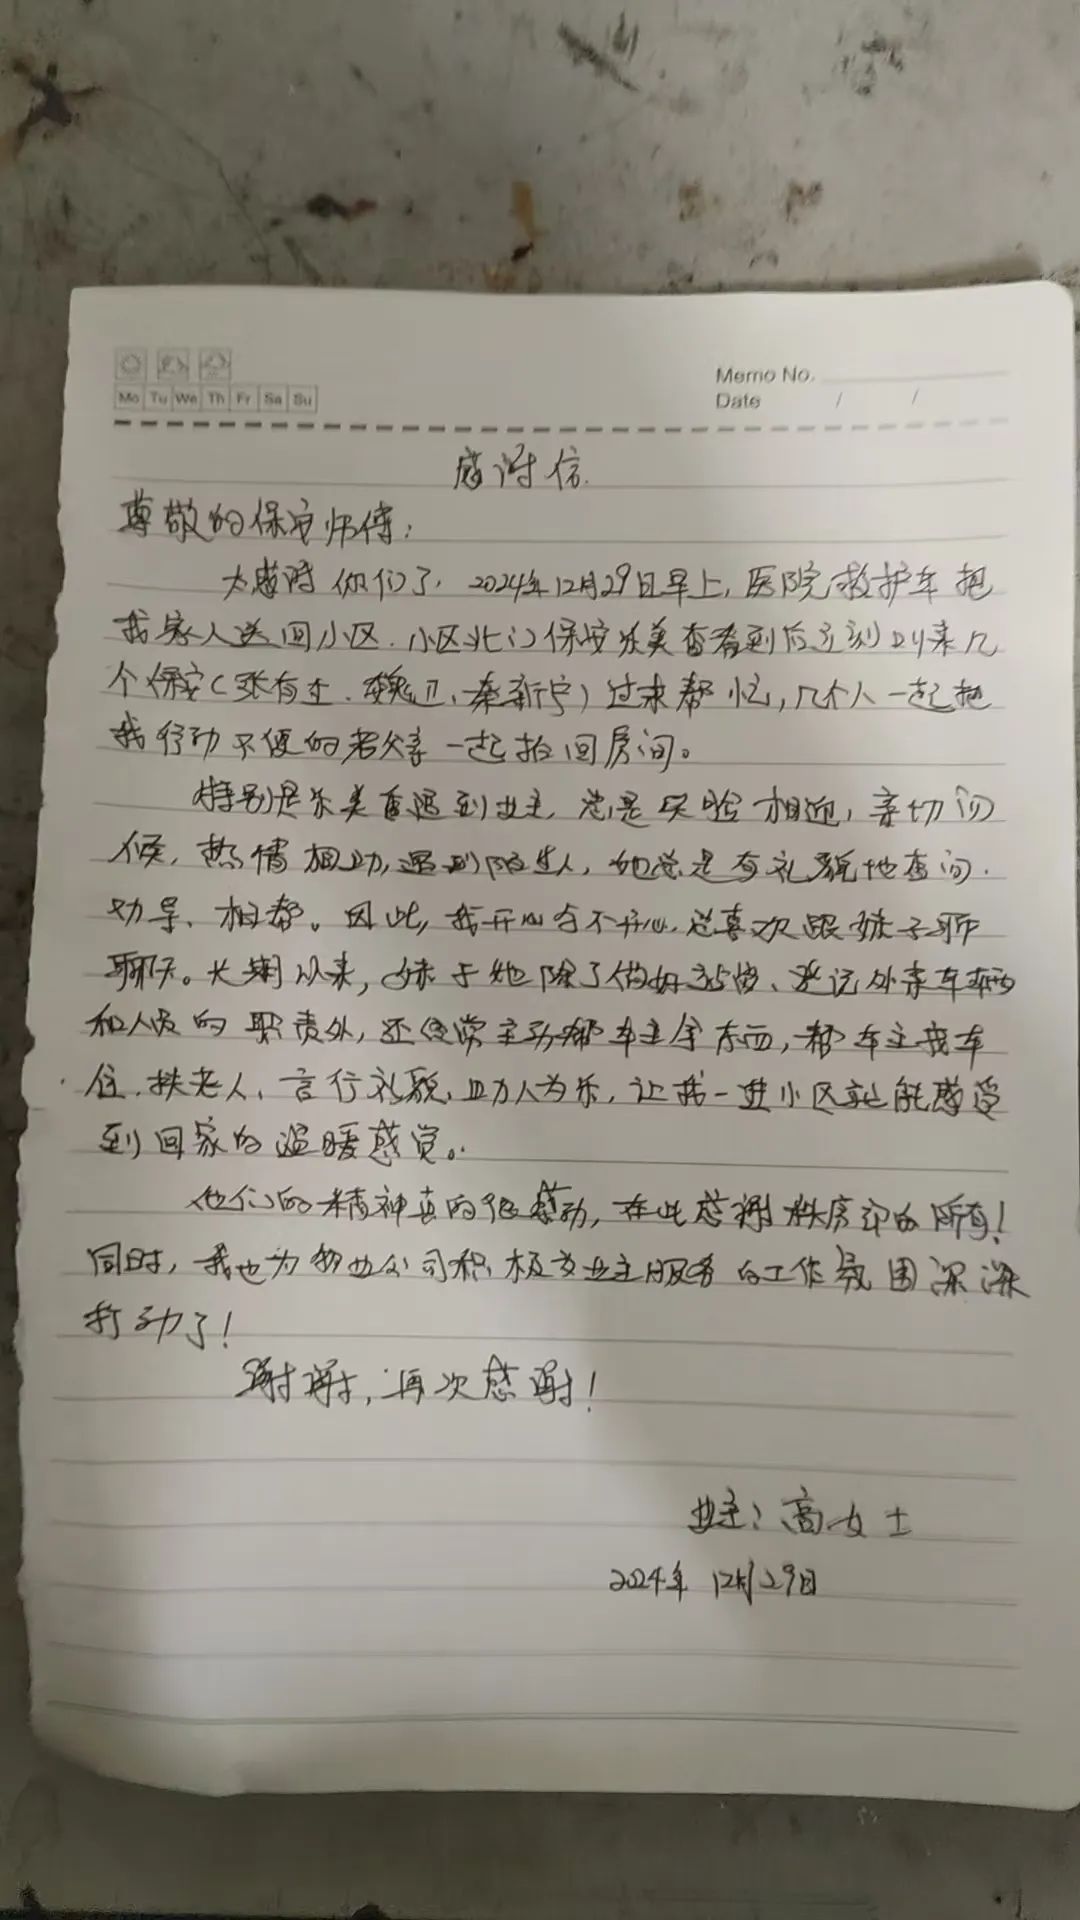 Mo Tu We Th Fr Sa Su
Memo No.
Date / /
感谢信
尊敬的保安师傅：
太感谢你们了，2024年12月29日早上，医院救护车把
我家人送回小区，小区北门保安乐美香看到后立刻叫来几
个保安（张有士、魏卫、秦新宁）过来帮忙，几个人一起把
我行动不便的老父亲一起抬回房间。
特别是乐美香遇到业主，总是笑脸相迎，亲切问
候，热情相助，遇到陌生人，她总是有礼貌地查问、
劝导、相帮。因此，我开心与不开心，总喜欢跟妹子聊
聊天。长期以来，妹子她除了做好站岗、登记外来车辆
和人员的职责外，还经常主动帮车主拿东西，帮车主找车
位、扶老人、言行礼貌，助人为乐，让我一进小区就能感受
到回家的温暖感觉。
他们的精神真的很感动，在此感谢秩序部的所有！
同时，我也为物业公司积极为业主服务的工作氛围深深
打动了！
谢谢，再次感谢！
业主：高女士
2024年12月29日